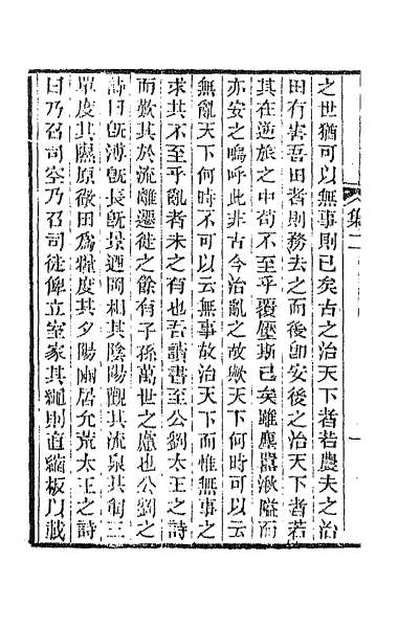 之世猶可以無事則已矣古之治天下者若農夫之治
田有害吾田者則務去之而後卽安後之治天下者若
其在逆旅之中苟不至乎覆壓斯已矣雖塵囂湫隘而
亦安之嗚呼此非古今治亂之故歟天下何時可以云
無亂天下何時不可以云無事故治天下而惟無事之
求其不至乎亂者未之有也吾讀書至公劉太王之詩
而歎其於流離遷徙之餘有子孫萬世之慮也公劉之
詩曰旣溥旣長旣景迺岡相其陰陽觀其流泉其軍三
單度其隰原徹田爲糧度其夕陽豳居允荒太王之詩
曰乃召司空乃召司徒俾立室家其繩則直縮板以載
集二
一